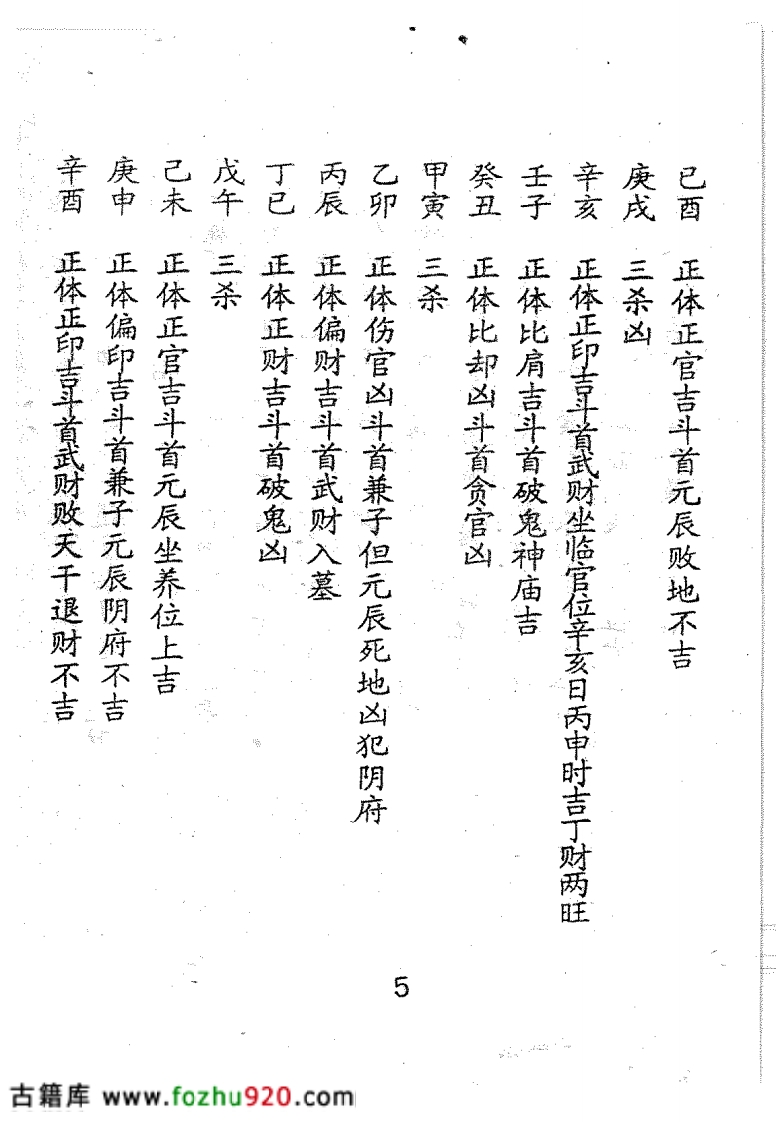 己酉 正体正官吉斗首元辰败地不吉
庚戌 三杀凶
辛亥 正体正印吉斗首武财坐临官位辛亥日丙申时吉丁财两旺
壬子 正体比肩吉斗首破鬼神庙吉
癸丑 正体比却凶斗首贪官凶
甲寅 三杀
乙卯 正体伤官凶斗首兼子但元辰死地凶犯阴府
丙辰 正体偏财吉斗首武财入墓
丁巳 正体正财吉斗首破鬼凶
戊午 三杀
己未 正体正官吉斗首元辰坐养位上吉
庚申 正体偏印吉斗首兼子元辰阴府不吉
辛酉 正体正印吉斗首武财败天干退财不吉
5
古籍库 www.fozhu920.com